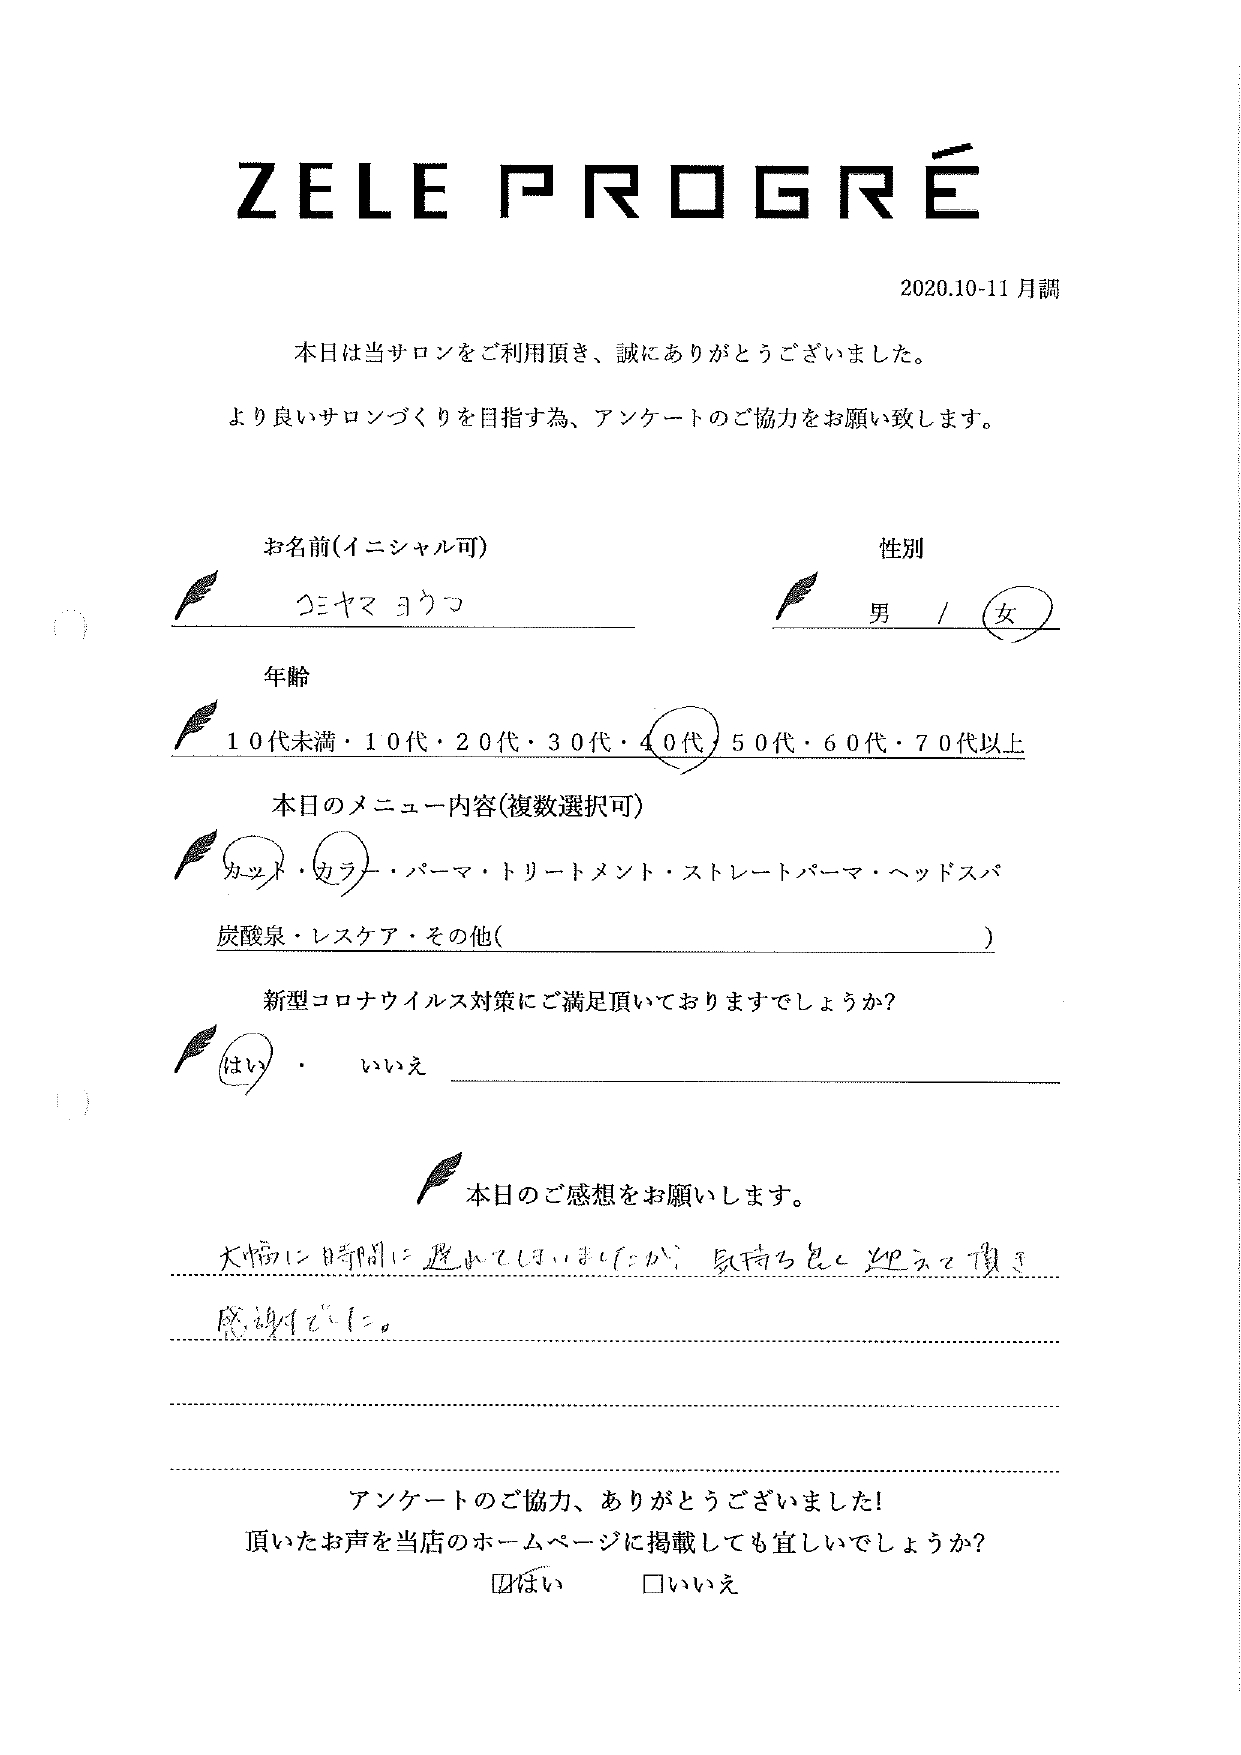 ZELE PROGRÉ
2020.10-11 月調
本日は当サロンをご利用頂き、誠にありがとうございました。
より良いサロンづくりを目指す為、アンケートのご協力をお願い致します。
お名前(イニシャル可) 性別
コミヤマ ヨウコ 男 / 女
年齢
10代未満・10代・20代・30代・40代・50代・60代・70代以上
本日のメニュー内容(複数選択可)
カット・カラー・パーマ・トリートメント・ストレートパーマ・ヘッドスパ
炭酸泉・レスケア・その他( )
新型コロナウイルス対策にご満足頂いておりますでしょうか?
はい ・ いいえ
本日のご感想をお願いします。
大幅に時間に遅れてしまいましたが、気持ち良く迎えて頂き
感謝でした。
アンケートのご協力、ありがとうございました!
頂いたお声を当店のホームページに掲載しても宜しいでしょうか?
☑はい □いいえ